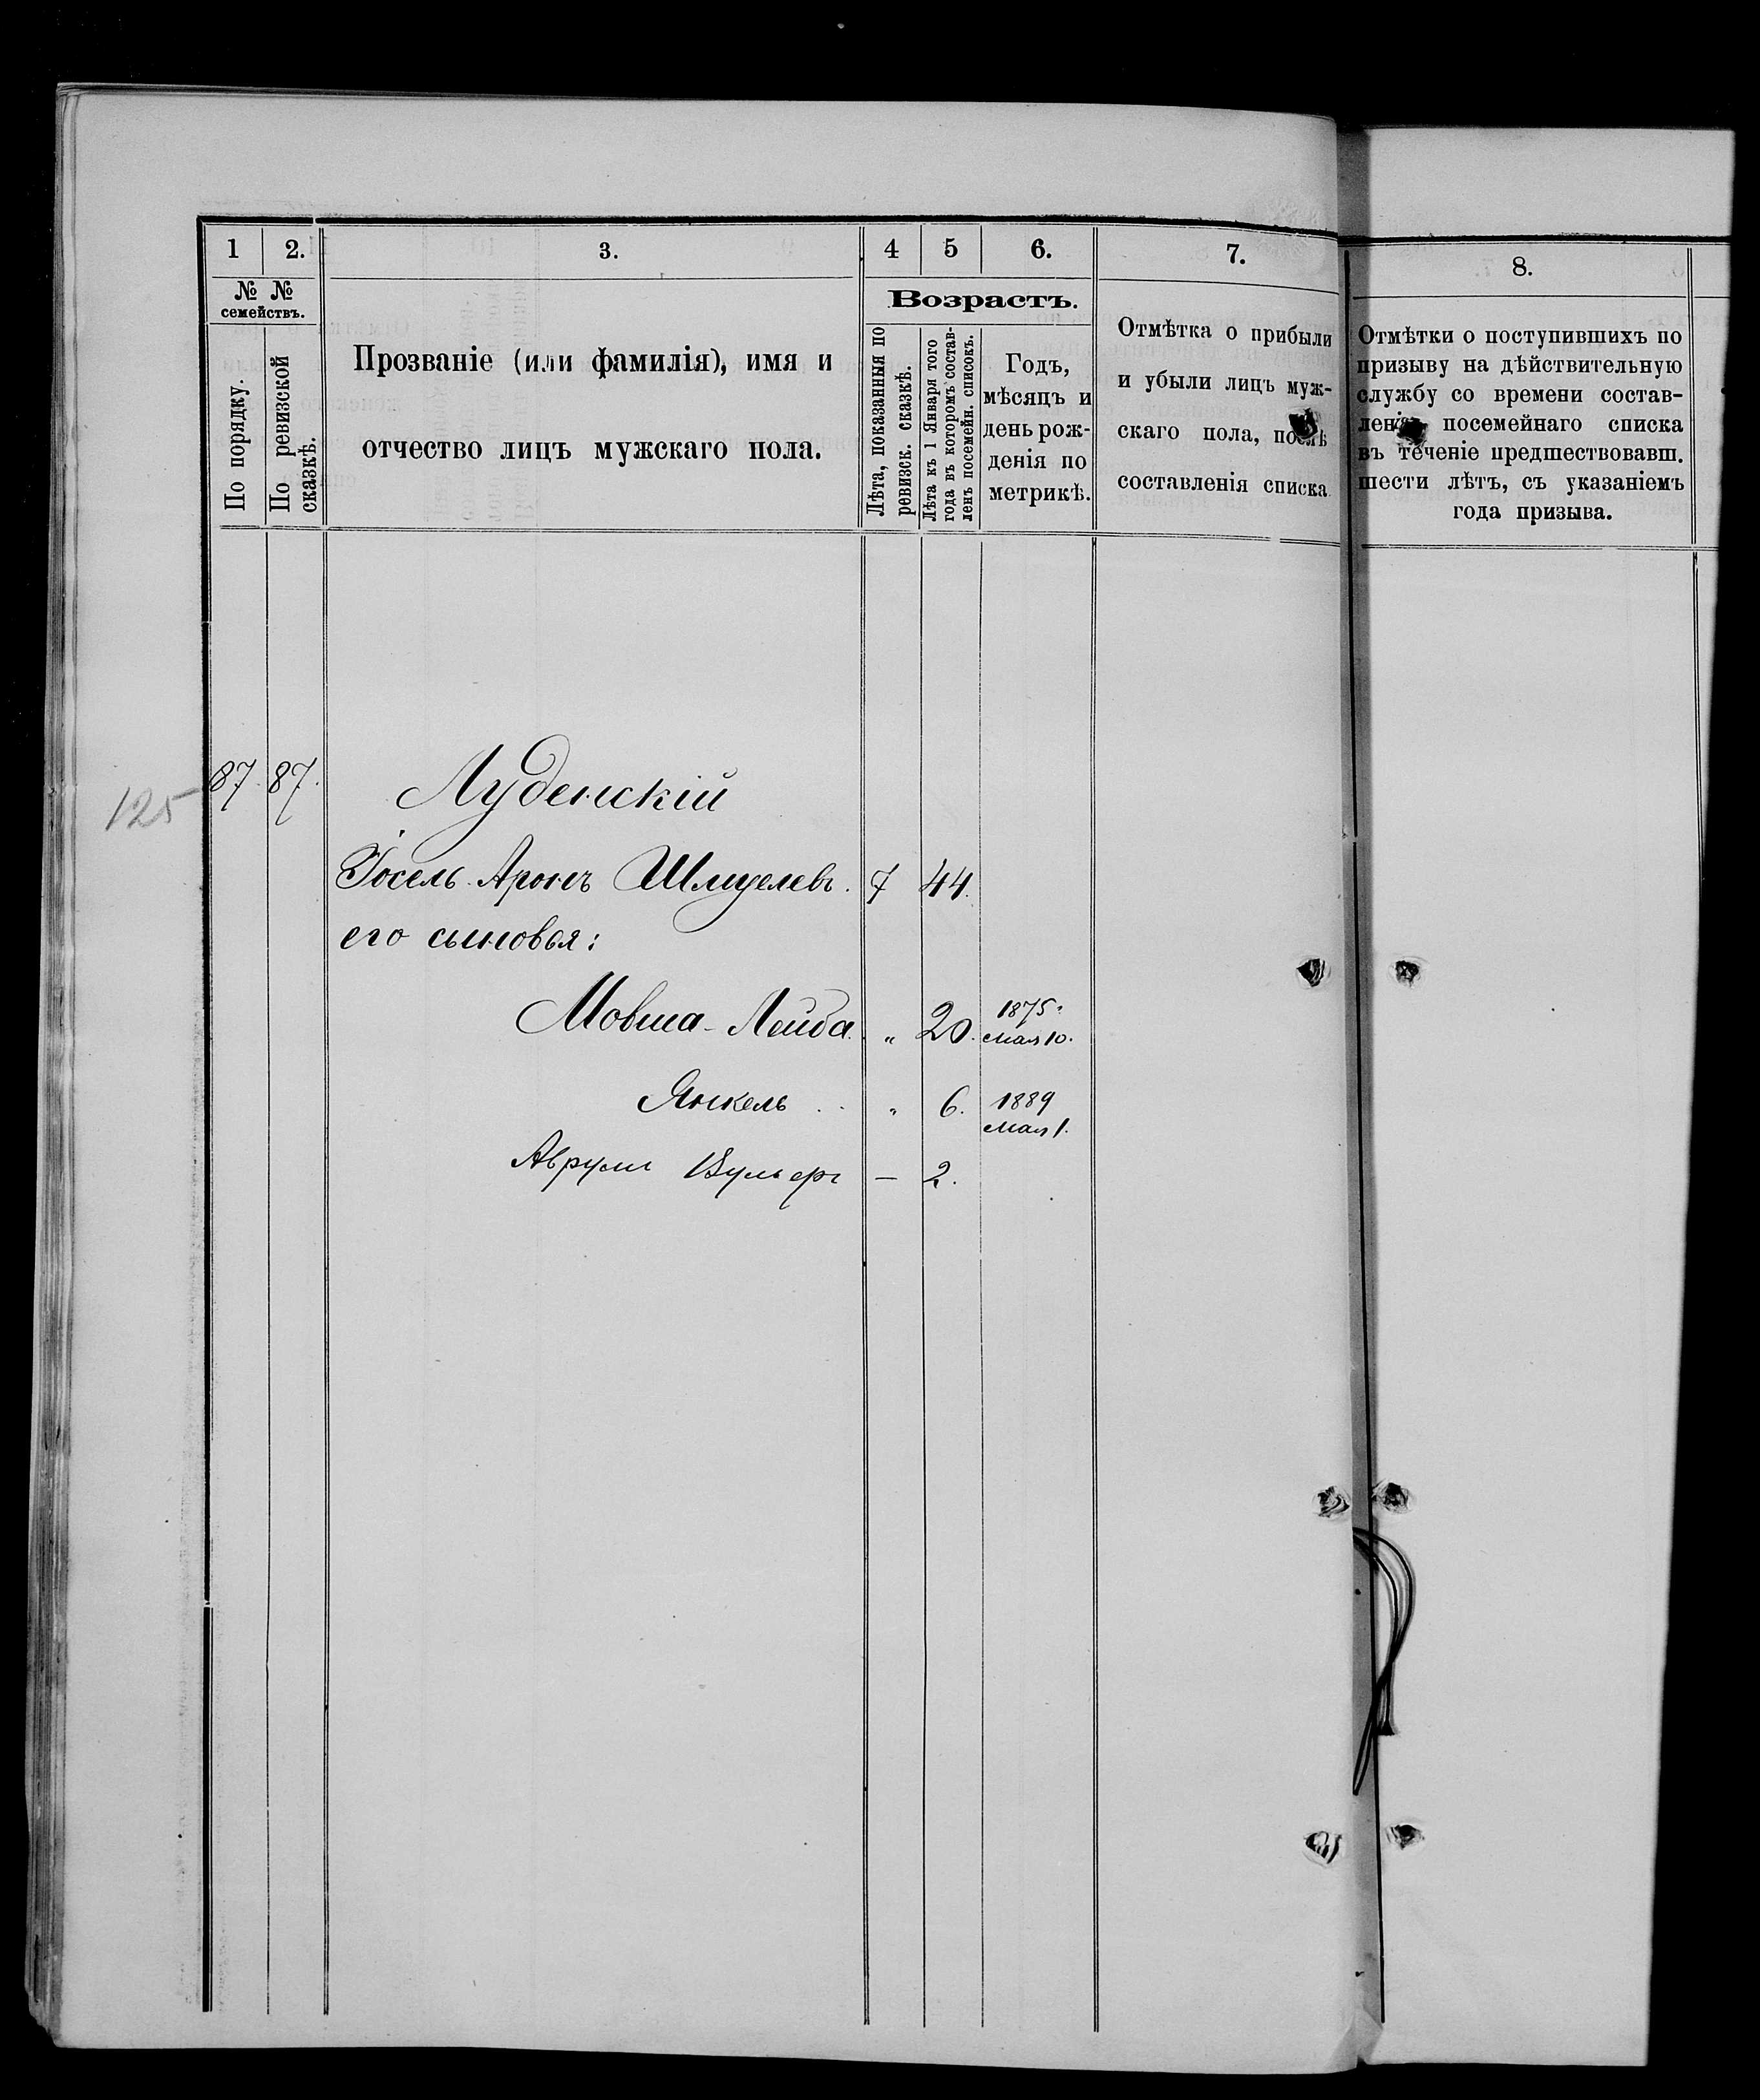 1 2. 3. 4 5 6. 7. 8.
№ №
семействъ.
По порядку.
По ревизской
сказкѣ.
Прозваніе (или фамилія), имя и
отчество лицъ мужскаго пола.
Возрастъ.
Лѣта, показанныя по
ревизск. сказкѣ.
Лѣта къ 1 Января того
года въ которомъ состав-
ленъ посемейн. списокъ.
Годъ,
мѣсяцъ и
день рож-
денія по
метрикѣ.
Отмѣтка о прибыли
и убыли лицъ муж-
скаго пола, послѣ
составленія списка
Отмѣтки о поступившихъ по
призыву на дѣйствительную
службу со времени состав-
ленія посемейнаго списка
въ теченіе предшествовавш.
шести лѣтъ, съ указаніемъ
года призыва.
125 87. 87. Луденскій
Іосель Аронъ Шмуелевъ. 7 44.
его сыновья:
Мовша-Лейба. „ 20. 1875.
Мая 10.
Янкель .. „ 6. 1889
Мая 1.
Аврумъ — 2.